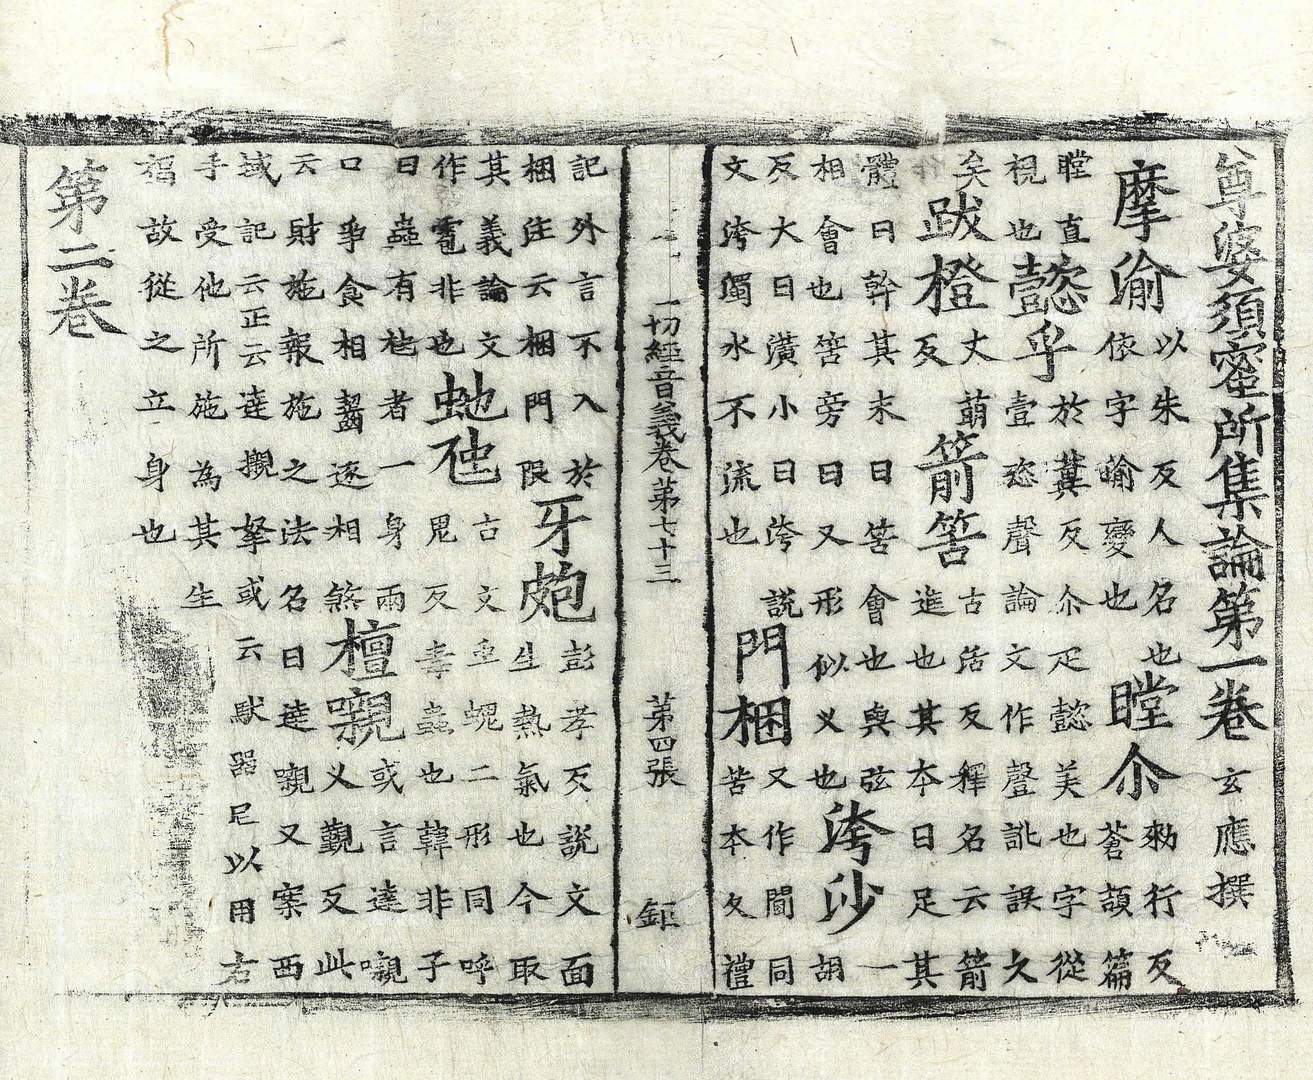 尊婆須蜜所集論第一卷 玄應撰
摩渝 以朱反人名也依字喻變也 瞠尒 勑行反蒼頡篇
瞠直視也 懿乎 於冀反尒疋懿美也字從壹恣聲論文作謷訛誤久
矣 跋橙 丈萌反 箭筈 古活反釋名云箭進也其本曰足其
體曰幹其末曰筈會也與弦相會也筈旁曰叉形似叉也 洿沙 一胡
反大曰潢小曰洿說文洿濁水不流也 門梱 又作閫同苦本反禮
一切經音義卷第七十三 第四張 鉅
記外言不入於梱注云梱門限 牙皰 彭孝反說文面生熱氣也今取
其義論文作雹非也 虵虺 古文虫螝二形同呼鬼反毒蟲也韓非子
曰蟲有虺者一身兩口爭食相齧逐相煞 檀嚫 或言達嚫叉覲反此
云財施報施之法名曰達嚫又案西域記云正云達櫬拏或云馱器尼以用右
手受他所施為其生福故從之立身也
第二卷